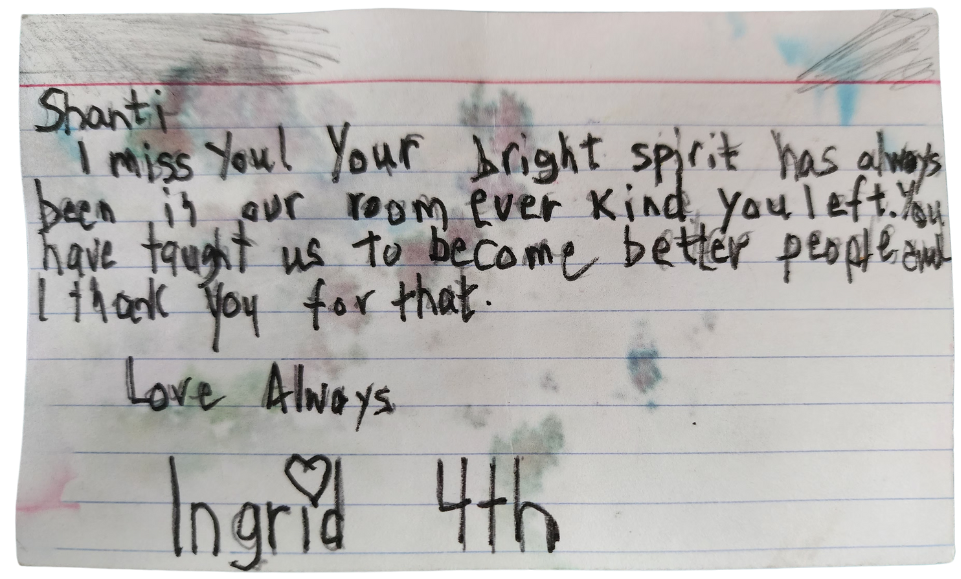 Shanti
I miss You! Your bright spirit has always
been in our room ever kind you left. You
have taught us to become better people and
I thank you for that.
Love Always
Ingrid 4th